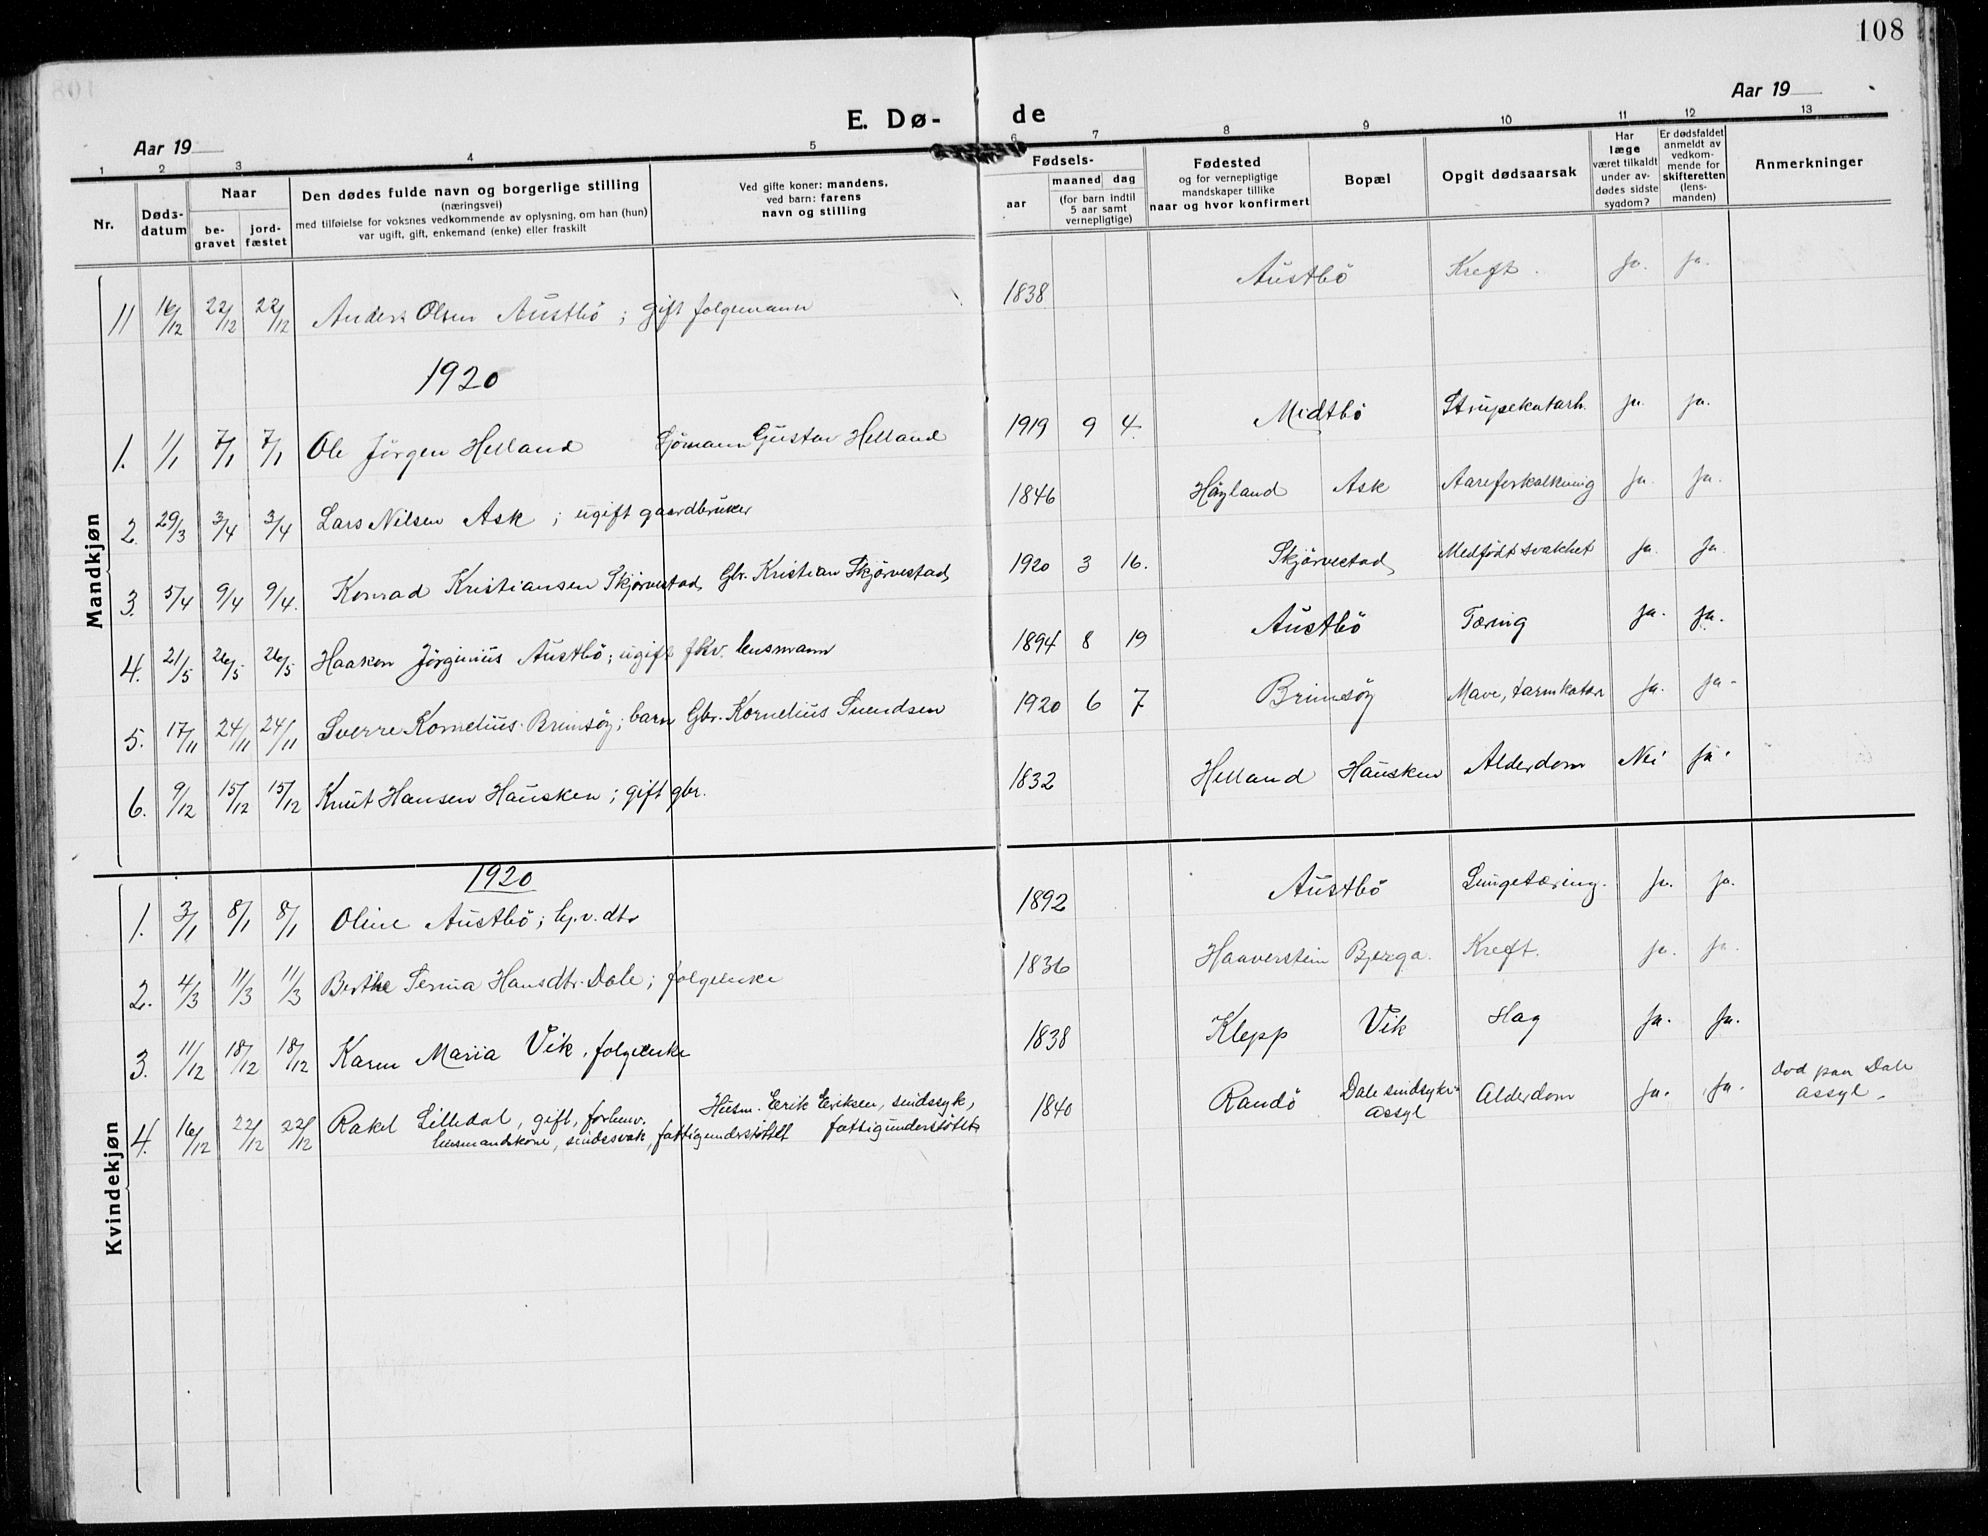 108
Aar 19
Aar 19
E. Dø- de
1 2 3 4 5 6 7 8 9 10 11 12 13
Nr.
Døds-
datum
Naar
be-
gravet
jord-
fæstet
Den dødes fulde navn og borgerlige stilling
(næringsvei)
med tilføielse for voksnes vedkommende av oplysning, om han (hun)
var ugift, gift, enkemand (enke) eller fraskilt
Ved gifte koner: mandens,
ved barn: farens
navn og stilling
Fødsels-
aar
maaned dag
(for barn indtil
5 aar samt
vernepligtige)
Fødested
og for vernepligtige
mandskaper tillike
naar og hvor konfirmert
Bopæl
Opgit dødsaarsak
Har
læge
været tilkaldt
under av-
dødes sidste
sygdom?
Er dødsfaldet
anmeldt av
vedkom-
mende for
skifteretten
(lens-
manden)
Anmerkninger
Mandkjøn
11 16/12 22/12 22/12 Anders Olsen Austbö ; gift følgemann 1838 Austbö Kreft. ja. ja.
1920
1. 1/1 7/1 7/1 Ole Jörgen Helland Sjömann Gustav Helland 1919 9 4. Midtbö Strupekatarh. ja. ja.
2. 29/3 3/4 3/4 Lars Nilsen Ask ; ugift gaardbruker 1846 Høyland Ask Aareforkalkning ja. ja.
3. 5/4 9/4 9/4. Konrad Kristiansen Skjörvestad Gbr. Kristian Skjörvestad 1920 3 16. Skjörvestad Medfödt svakhet ja. ja.
4. 21/5 26/5 26/5 Haakon Jörginius Austbö ; ugift fhv. lensmann 1894 8 19 Austbö Tæring ja. ja.
5. 17/11 24/11 24/11 Sverre Kornelius Brimsöy ; barn Gbr. Kornelius Svendsen 1920 6 7 Brimsöy Mave, tarmkatar ja. ja.
6. 9/12 15/12 15/12 Knut Hansen Hausken ; gift gbr. 1832 Helland Hausken Alderdom Nei ja.
Kvindekjøn
1920
1. 3/1 8/1 8/1 Oline Austbö ; hj.v. dtr 1892 Austbö Lungetæring. ja. ja.
2. 4/3 11/3 11/3 Berthe Serina Hansdtr. Dale ; følgeenke 1836 Haaverstein Bjerga. Kreft. ja. ja.
3. 11/12 18/12 18/12 Karen Maria Vik, følgeenke 1838 Klepp Vik Slag ja. ja.
4. 16/12 22/12 22/12 Rakel Lilledal, gift, forhenv. Husm. Erik Eriksen, sindssyk, 1840 Randö Dale sindsyke- Alderdom ja. ja. död paa Dale
husmandskone, sindssvak, fattigunderstöttet fattigunderstöttet assyl assyl.